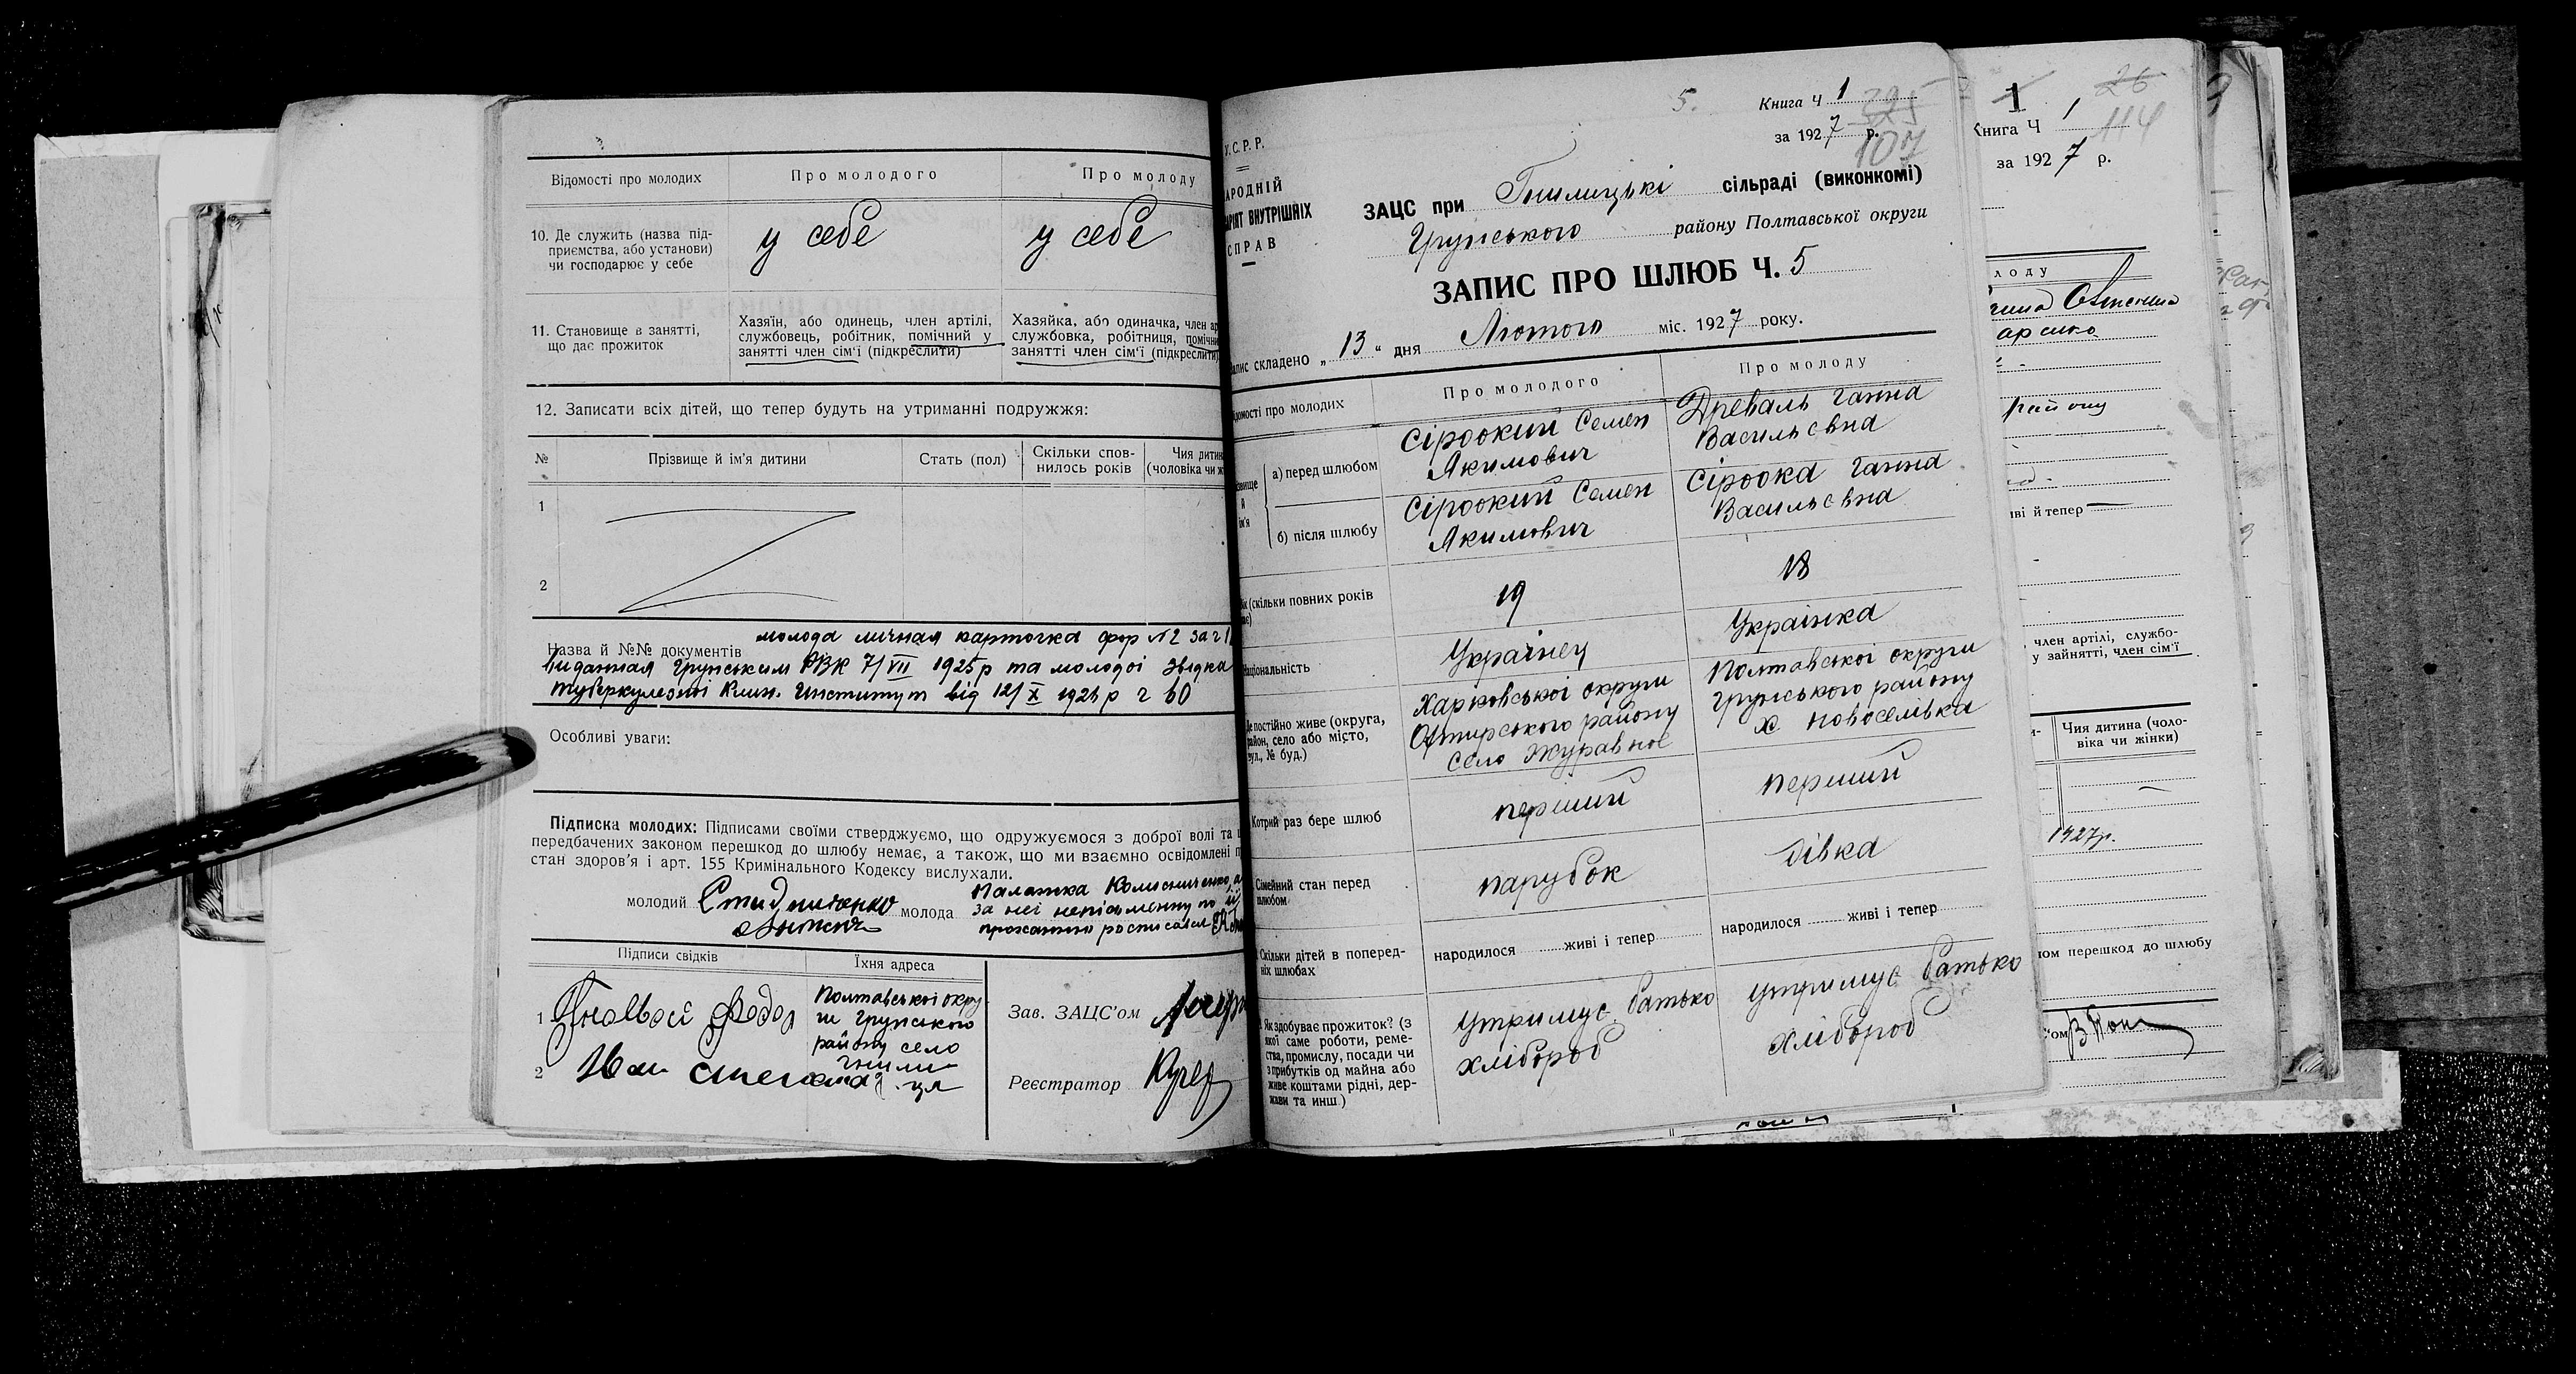 Відомості про молодих
Про молодого
Про молоду
10. Де служить (назва під-
приємства, або установи)
чи господарює у себе
у себе
у себе
11. Становище в занятті,
що дає прожиток
Хазяїн, або одинець, член артілі,
службовець, робітник, помічний у
занятті член сім'ї (підкреслити)
Хазяйка, або одиначка, член ар
службовка, робітниця, помічн
занятті член сім'ї (підкреслити)
12. Записати всіх дітей, що тепер будуть на утриманні подружжя:
№
Прізвище й ім'я дитини
Стать (пол)
Скільки спов-
нилось років
Чия дитин
(чоловіка чи ж
1
2
Назва й №№ документів
молода личная карточка фор №2 за ч 1
виданная Грунським РВК 7/VII 1925р та молодої звідка
туберкульозної Клин. Институт від 12/X 1926 р ч 60
Особливі уваги:
Підписка молодих: Підписами своїми стверджуємо, що одружуємося з доброї волі та
передбачених законом перешкод до шлюбу немає, а також, що ми взаємно освідомлені п
стан здоров'я і арт. 155 Кримінального Кодексу вислухали.
молодий
молода
Палажка Колисниченко, а
за неї неписьменну по її
проханню росписався
Підписи свідків
Їхня адреса
1
2
Полтавської окру
ги Грунського
району село
Гнили
ця
Зав. ЗАЦС'ом
Реєстратор
Кучер
У.С.Р.Р.
АРОДНІЙ
АРІЯТ ВНУТРІШНІХ
СПРАВ
5.
Книга Ч 1
325
за 1927 р.
107
ЗАЦС при Гнилицькі сільраді (виконкомі)
Грунського району Полтавської округи
ЗАПИС ПРО ШЛЮБ Ч. 5
апис складено „ 13 " дня Лютого міс. 1927 року.
ідомості про молодих
Про молодого
Про молоду
ізвище
й
ім'я
а) перед шлюбом
Сіроокий Семен
Якимович
Древаль Ганна
Васильевна
б) після шлюбу
Сіроокий Семен
Якимович
Сіроока Ганна
Васильевна
ік (скільки повних років
ає)
19
18
аціональність
Українец
Українка
Де постійно живе (округа,
район, село або місто,
вул., № буд.)
Харківської округи
Охтирського району
Село Журавное
Полтавської округи
Грунського району
х Новоселівка
Котрий раз бере шлюб
перший
перший
Сімейний стан перед
шлюбом
парубок
дівка
Скільки дітей в поперед-
ніх шлюбах
народилося живі і тепер
народилося живі і тепер
Як здобуває прожиток? (з
якої саме роботи, реме-
ства, промислу, посади чи
з прибутків од майна або
живе коштами рідні, дер-
жави та инш.)
утримує батько
хлібороб
утримує батько
хлібороб
1
26
Книга Ч 1
114
за 1927 р.
лоду
району
иві й тепер
член артілі, службо-
у зайнятті, член сім'ї
и-
Чия дитина (чоло-
віка чи жінки)
1927р.
ом перешкод до шлюбу
'ом